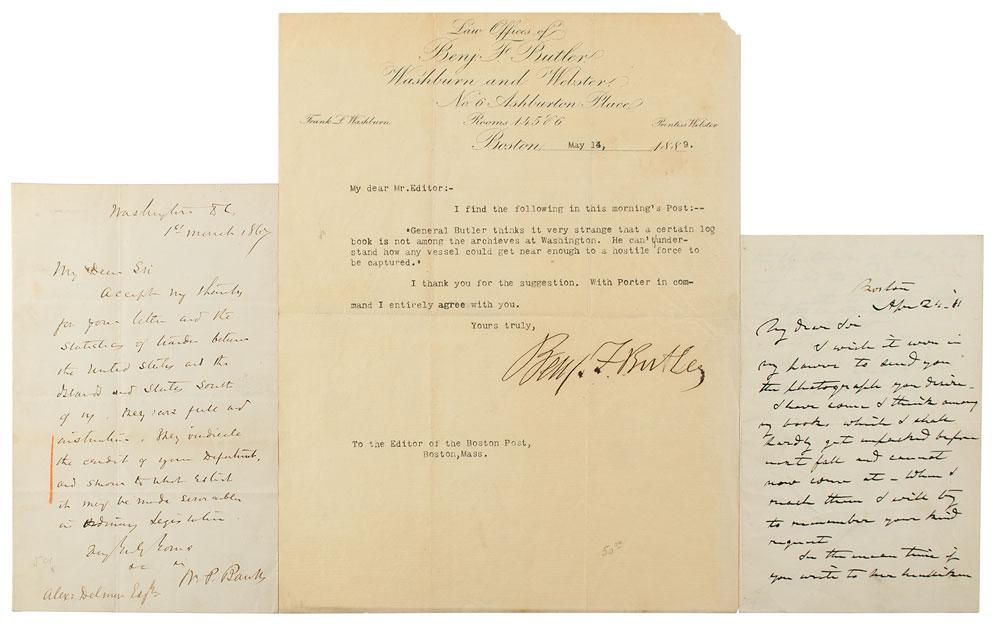 Washington D.C.
1st March 1867
My Dear Sir
Accept my thanks
for your letter and the
Statistics of trade between
the United States and the
Islands and States South
of us. They are full and
instructive. They vindicate
the credit of your Department,
and show to what extent
it may be made serviceable
in ordinary Legislation.
Very truly Yours
&c
N. P. Banks
Alex: Delmar Esqr
Law Offices of
Benj. F. Butler
Washburn and Webster,
No 6 Ashburton Place
Frank L. Washburn
Rooms 14 5 & 6
Prentiss Webster
Boston, May 14, 1889.
My dear Mr.Editor:-
I find the following in this morning's Post:--
"General Butler thinks it very strange that a certain log
book is not among the archieves at Washington. He can't under-
stand how any vessel could get near enough to a hostile force to
be captured."
I thank you for the suggestion. With Porter in com-
mand I entirely agree with you.
Yours truly,
Benj. F. Butler
To the Editor of the Boston Post,
Boston,Mass.
50.00
Boston
Apr 24
My dear Sir
I wish it were in
my power to send you
the photograph you desire -
I have some I think among
my books which I shall
hardly get unpacked before
next fall and cannot
now come at - When I
reach them I will try
to remember your kind
request
In the mean time if
you write to